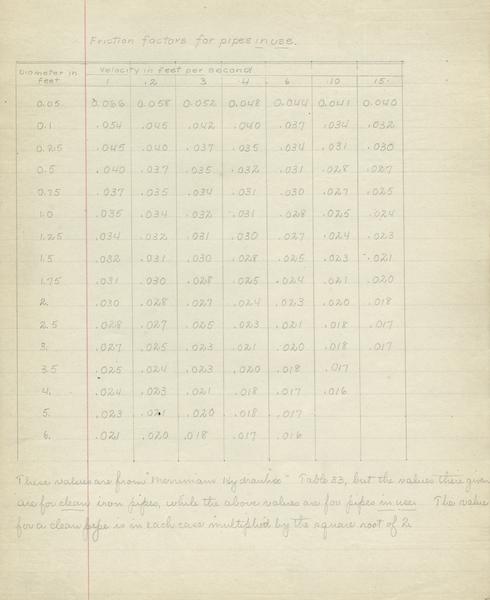 Friction factors for pipes in use.
Diameter in feet Velocity in feet per second
1 2 3 4 6 10 15
0.05 0.066 0.058 0.052 0.048 0.044 0.041 0.040
0.1 .054 .045 .042 .040 .037 .034 .032
0.25 .045 .040 .037 .035 .034 .031 .030
0.5 .040 .037 .035 .032 .031 .028 .027
0.75 .037 .035 .034 .031 .030 .027 .025
1.0 .035 .034 .032 .031 .028 .025 .024
1.25 .034 .032 .031 .030 .027 .024 .023
1.5 .032 .031 .030 .028 .025 .023 .021
1.75 .031 .030 .028 .025 .024 .021 .020
2. .030 .028 .027 .024 .023 .020 .018
2.5 .028 .027 .025 .023 .021 .018 .017
3. .027 .025 .023 .021 .020 .018 .017
3.5 .025 .024 .023 .020 .018 .017
4. .024 .023 .021 .018 .017 .016
5. .023 .021 .020 .018 .017
6. .021 .020 .018 .017 .016
These values are from "Merrimans Hydraulics" Table 33, but the values there given
are for clean iron pipes, while the above values are for pipes in use. The value
for a clean pipe is in each case multiplied by the square root of 2.